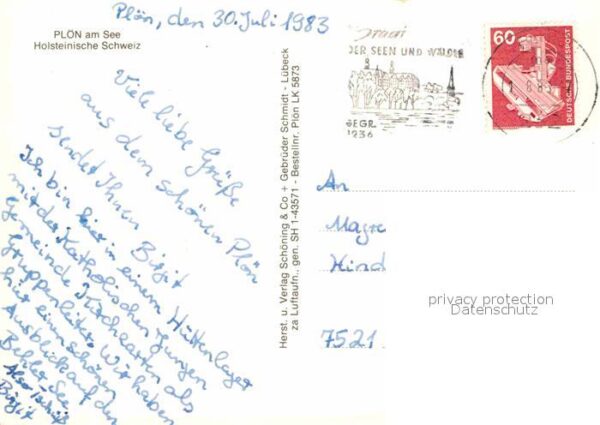 Plön, den 30. Juli 1983
PLÖN am See
Holsteinische Schweiz
Viele liebe Grüße
aus dem schönen Plön
sendet Ihnen
Birgit
Ich bin hier in einem Hüttenlager
mit der Katholischen Jungen
Gemeinde Kirchgarten als
Gruppenleiter. Wir haben
hier einen schönen
Ausblick auf den
Behler See.
Also Tschüß
Birgit
Herst. u. Verlag Schöning & Co + Gebrüder Schmidt - Lübeck
za Luftaufn., gen. SH 1-43571 - Bestellnr. Plön LK 5873
DER SEEN UND WÄLDER
GEGR.
1236
60
DEUTSCHE BUNDESPOST
An
Magre
Kind
7521
privacy protection
Datenschutz